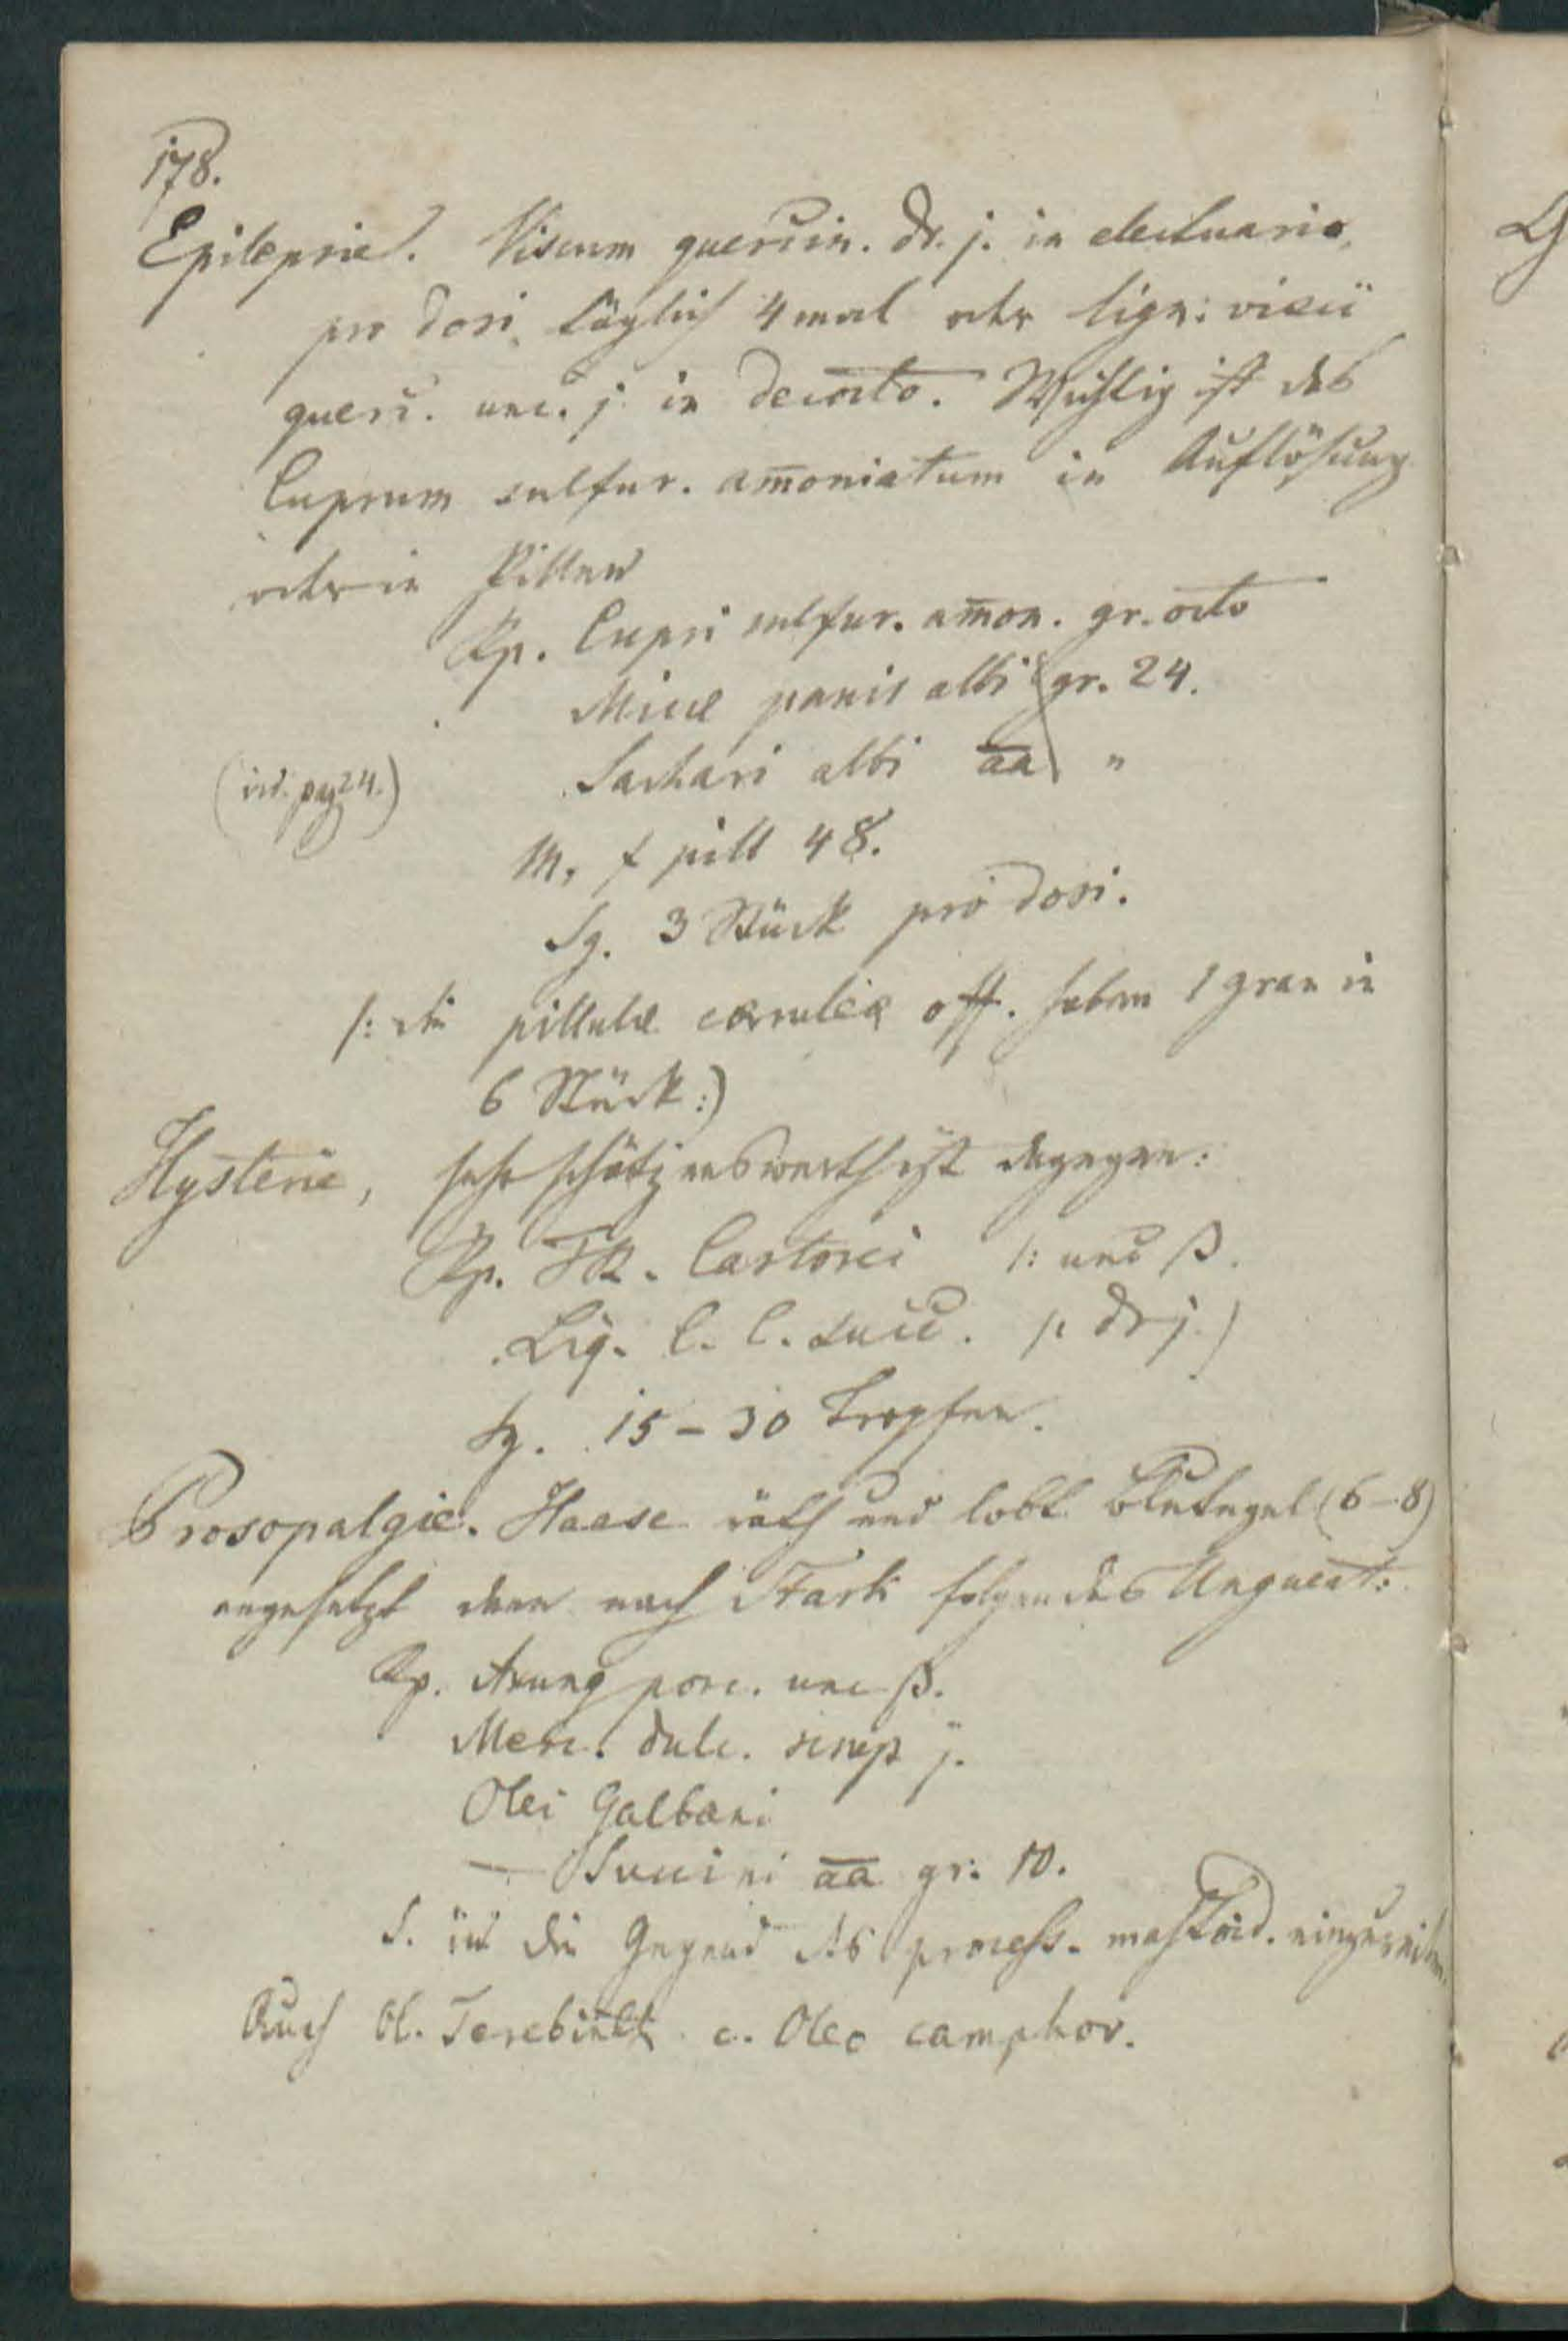 178.
Epilepsie. Viscum quercin. dr. j. in electuario,
pro dosi täglich 4 mal oder lign: visci
querc. unc. j. in decocto. Wichtig ist das
Cuprum sulfur. amoniatum in Auflösung
oder in Pillen
Rp. Cupri sulfur. amon. gr. octo
Micæ panis albi gr. 24.
(vid. pag 24.) Sachari albi aa "
M, f pill 48.
Sg. 3 Stück pro dosi.
/: die pillulæ cœruleæ off. haben 1 gran in
6 Stück:)
Hysterie, sehr schätzenswerth ist dagegen:
Rp. Tr. Castorei /: unc ß.
Liq. C. C. succ. /: dr j. /
Sg. 15-30 Tropfen.
Prosopalgie. Haase räth und lobt Blutegel (6-8)
angesetzt dann nach Stark folgendes Unguent:
Rp. Axung porc. unc ß.
Merc. dulc. scrup j.
Olei Galbani
— Succini aa gr: 10.
S. in die Gegend des process. mastoid. einzureiben.
Auch Ol. Terebinth c. Oleo camphor.